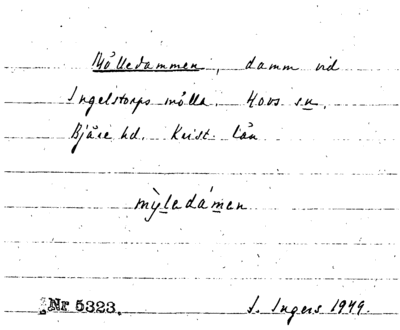 Mölledammen, damm vid
Ingelstorps mölla. Hovs sn,
Bjäre hd. Krist. län
mỳledámen
Nr 5323. I. Ingers 1949.